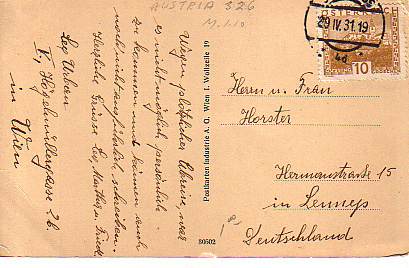 AUSTRIA 326
M. 1.10
29.IV.31.19
4d
ÖSTERREICH
10
Wegen plötzlicher Abreise, war
es nicht möglich persönlich
zu kommen und können auch
noch nicht ausführlich schreiben.
Herzliche Grüsse Leo, Martha u. Friedl.
Leo Urban
V., Högelmüllergasse 2b
in Wien
Postkarten-Industrie A. G. Wien I. Wollzeile 19
80502
Herrn u. Frau
Horster
Hermannstraße 15
in Lennep
Deutschland